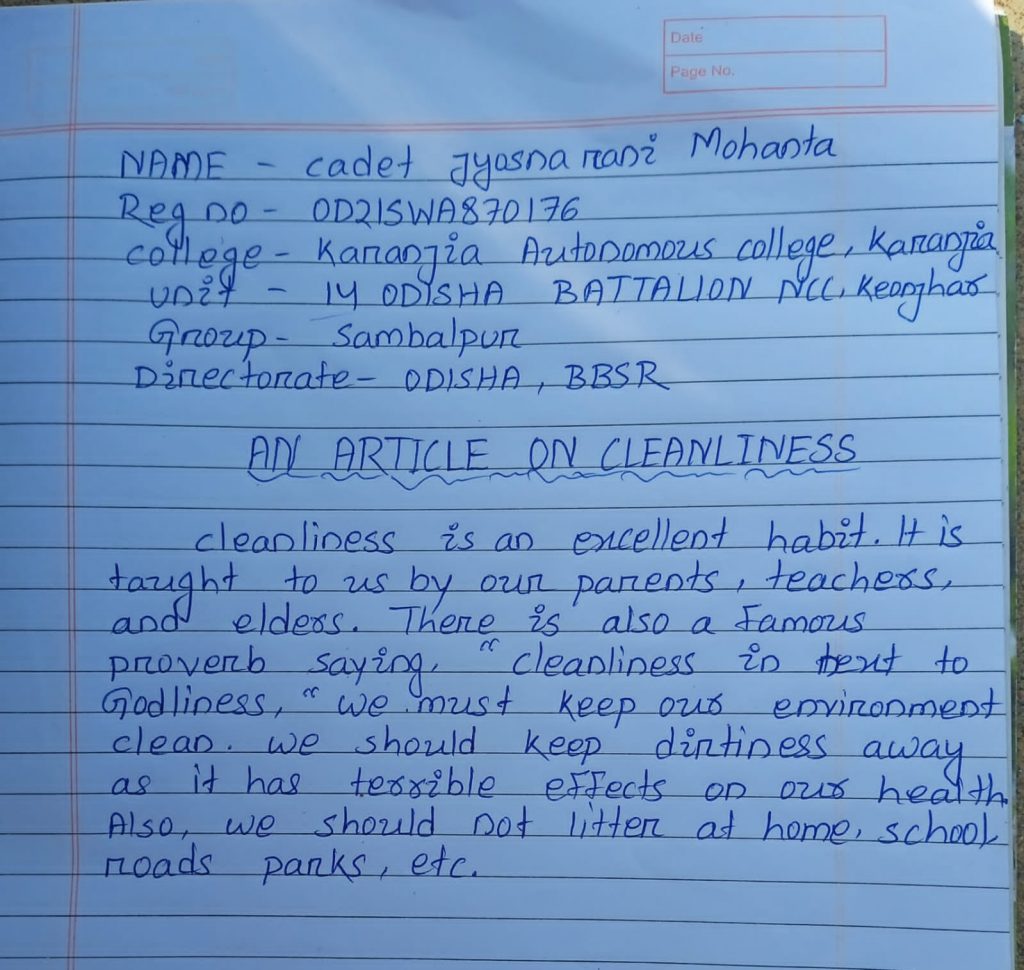 Date
Page No.
NAME - cadet Jyosna rani Mohanta
Reg no - OD21SWA870176
college - Karanjia Autonomous college, Karanjia
unit - 14 ODISHA BATTALION NCC, Keonjhar
Group - Sambalpur
Directorate - ODISHA, BBSR
AN ARTICLE ON CLEANLINESS
cleanliness is an excellent habit. It is
taught to us by our parents, teachers,
and elders. There is also a famous
proverb saying, "cleanliness in text to
Godliness," we must keep our environment
clean. we should keep dirtiness away
as it has terrible effects on our health.
Also, we should not litter at home, school
roads parks, etc.